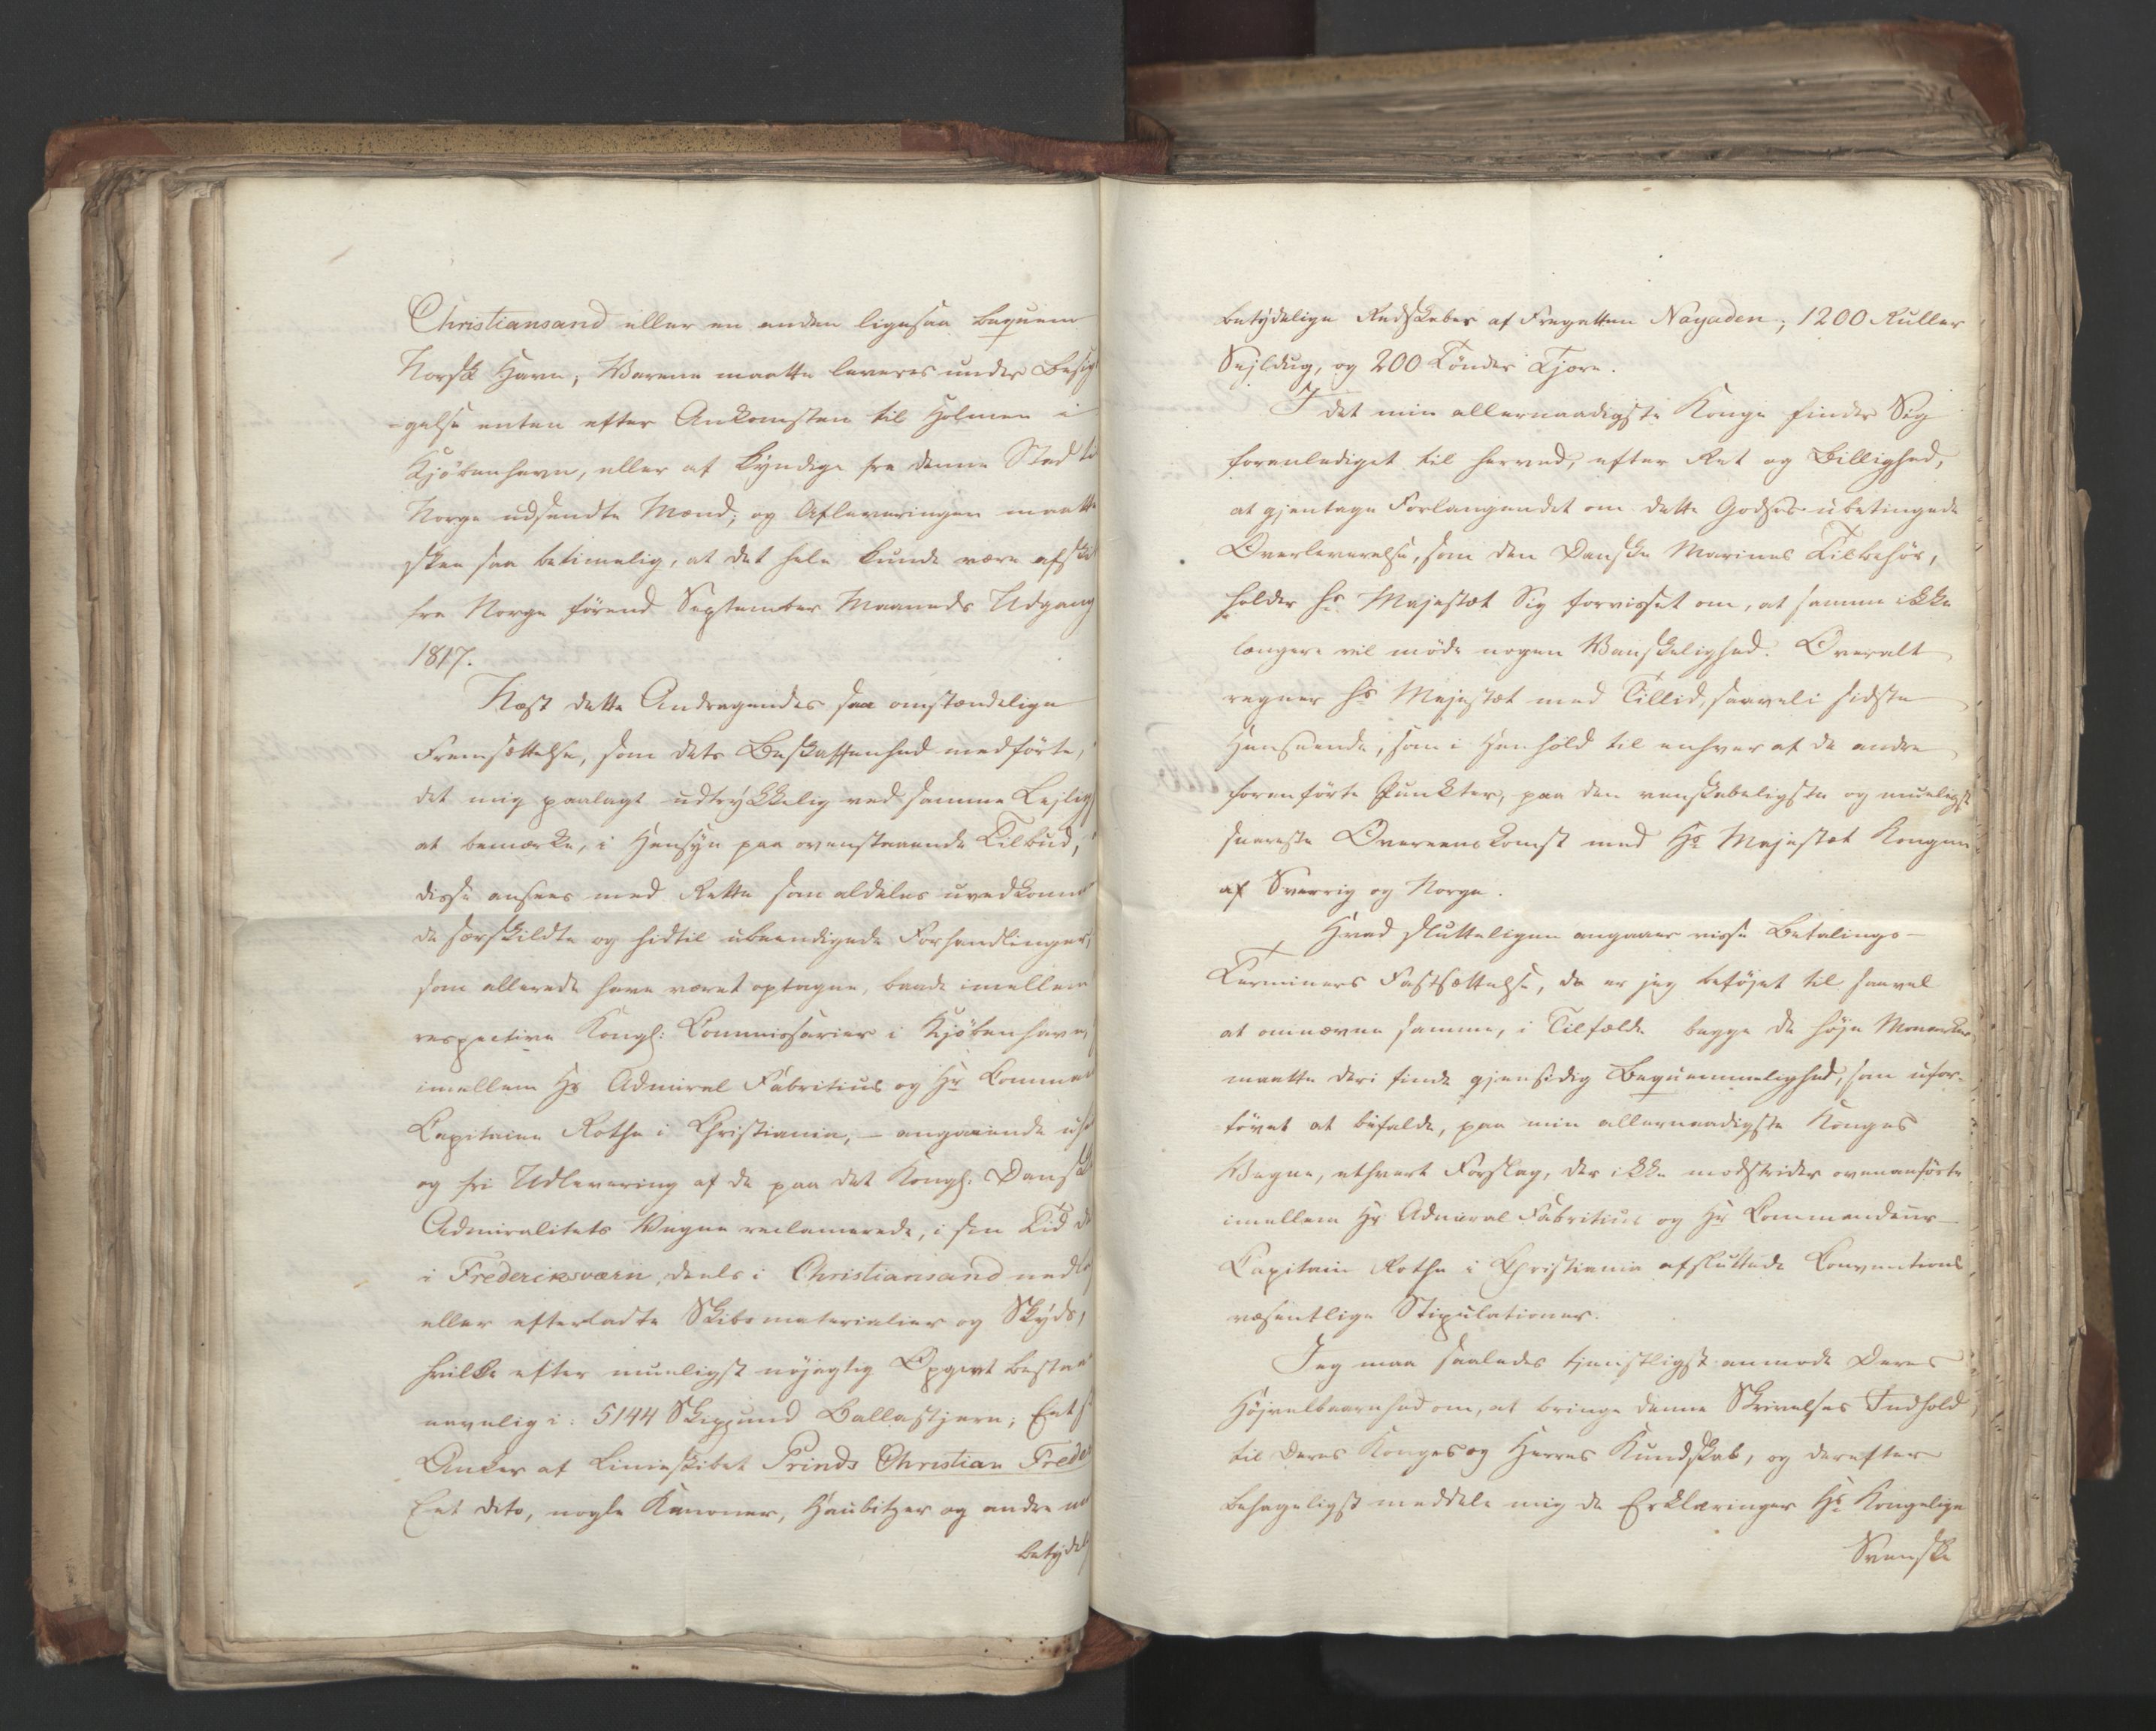 Christiansand eller en anden ligesaa beqvem
Norsk Havn; Varene maatte leveres under Besig
gelse enten efter Ankomsten til Holmen i
Kjöbenhavn, eller af kyndige fra denne Stad til
Norge udsendte Mænd; og Afleveringen maatte
skee saa betimelig, at det hele kunde være afskib
fra Norge förend September Maaneds Udgang
1817.
Næst dette Andragendes saa omstændelige
Fremsættelse, som dets Beskaffenhed medförte,
det mig paalagt udtrykkelig ved samme Lejlig
at bemærke, i Hensyn paa ovenstaaende Tilbud,
disse ansees med Rette som aldeles uvedkomm
de særskildte og hidtil ubeendigede Forhandlinger,
som allerede have været optagne, baade imellem
respective Kongl: Commissarier i Kjöbenhavn,
imellem Hr Admiral Fabritius og Hr Comman
Capitaine Rothe i Christiania, – angaaende
og fri Udlevering af de paa det Kongl. Danske
Admiralitets Vegne reclamerede, i sin Tid de
i Frederiksværn, deels i Christiansand nedla
eller efterladte Skibsmaterialier og Skyds,
hvilke efter mueligst nöjagtig Opgivt bestaa
navnlig i: 5144 Skippund Ballastjern; Eet
Anker af Linieskibet Prinds Christian Frede
Eet dito, nogle Kanoner, Haubitzer og andre
betyde
betydelige Redskaber af Fregatten Nayaden; 1200 Ruller
Sejldug, og 200 Tönder Tjere.
I det min allernaadigste Konge finder Sig
foranlediget til herved, efter Ret og Billighed,
at gjentage Forlangendet om dette Godses ubetingede
Overleverelse, som den Danske Marines Tilbehör,
holder Hs Majestæt Sig forvisset om, at samme ikke
længere vil möde nogen Vanskelighed. Overalt
regner Hs Majestæt med Tillid, saavel i sidste
Henseende, som i Henhold til enhver af de andre
foranförte Punkter, paa den venskabeligste og mueligst
snareste Overeenskomst med Hs Majestæt Kongen
af Sverrig og Norge.
Hvad sluttelligen angaaer visse Betalings-
Terminers Fastsættelse, da er jeg beföjet til saavel
at omnævne samme, i Tilfælde begge de höje Monarker
maatte deri finde gjensidig Beqvemmelighed, som ufor-
tövet at bifalde, paa min allernaadigste Konges
Vegne, ethvert Forslag, der ikke modstrider ovenanförte
imellem Hr Admiral Fabritius og Hr Commandeur-
Capitain Rothe i Christiania afsluttede Conventions
væsentlige Stipulationer.
Jeg maa saaledes tjenstligst anmode Deres
Höjvelbaarenhed om, at bringe denne Skrivelses Indhold
til Deres Konges og Herres Kundskab, og derefter
behageligst meddele mig de Erklæringer Hs Kongelige
Svenske